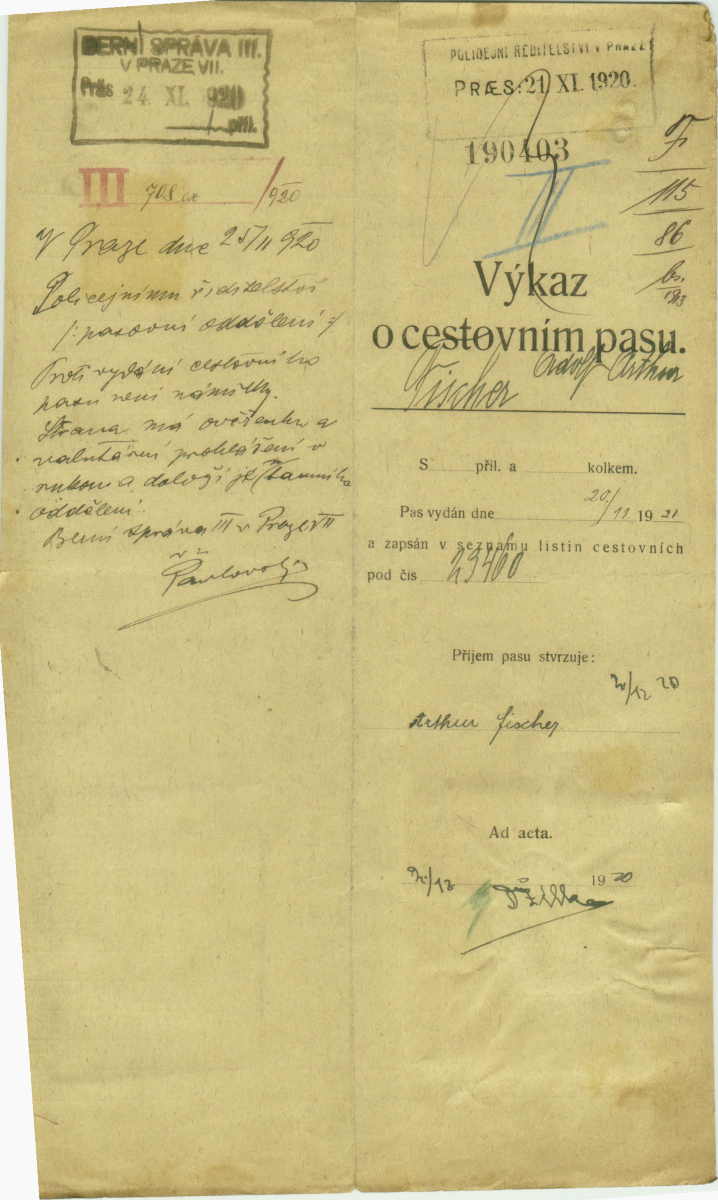 BERNÍ SPRÁVA III.
V PRAZE VII.
Präs 24. XI. 920
příl.
III 708 /920
V Praze dne 25/11 920
Policejnímu ředitelství
/: pasovní oddělení :/
Proti vydání cestovního
pasu není námitky.
Strana má ověřenku a
valutární prohlášení v
rukou a doloží je
oddělení.
Berní správa III v Praze VII
POLICEJNÍ ŘEDITELSTVÍ V PRAZE
PRÆS: 21 XI. 1920.
190403
II
F
115
86
1913
Výkaz
o cestovním pasu.
Fischer Adolf Arthur
S příl. a kolkem.
Pas vydán dne 20/11 1921
a zapsán v seznamu listin cestovních
pod čís 29460
Příjem pasu stvrzuje:
20/12 20
Arthur Fischer
Ad acta.
/12 1920